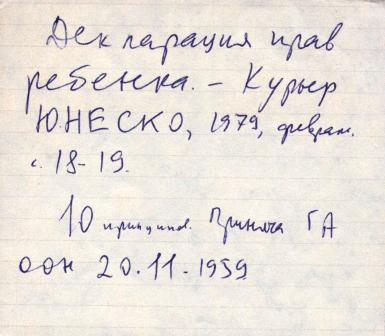 Декларация прав
ребенка. – Курьер
ЮНЕСКО, 1979, феврал.
с. 18-19.
10 принципов. Принята ГА
ООН 20.11.1959